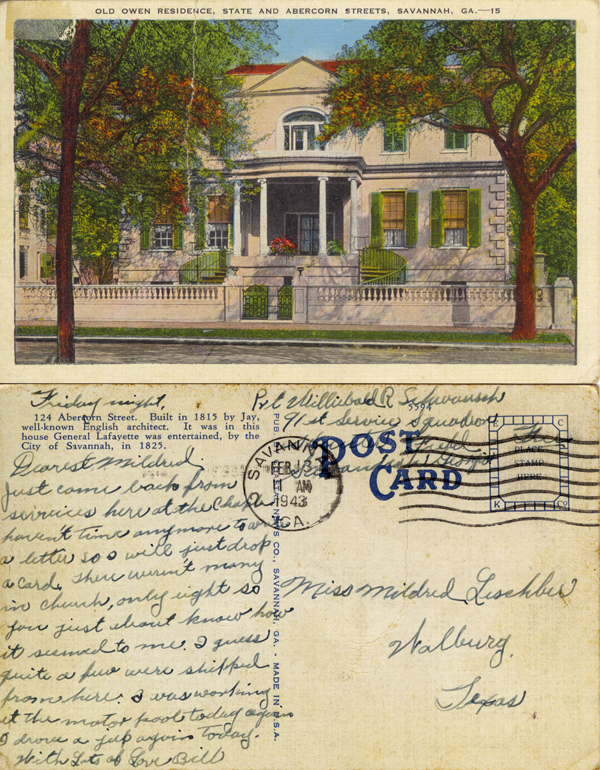 OLD OWEN RESIDENCE, STATE AND ABERCORN STREETS, SAVANNAH, GA.—15
Friday night,
124 Abercorn Street. Built in 1815 by Jay,
well-known English architect. It was in this
house General Lafayette was entertained, by the
City of Savannah, in 1825.
Dearest Mildred.
Just come back from
services here at the Chapel
haven't time anymore to write
a letter so I will just drop
a card. There weren't many
in church, only eight so
you just about know how
it seemed to me. I guess
quite a few were shipped
from here. I was working
at the motor pool today again
I drove a jeep again today.
With Lots of Love Bill
PUB
CO., SAVANNAH, GA. - MADE IN U.S.A.
Pvt Willibald R.
5594
91st Service Squadron
Field
Savannah, Georgia
Free
SAVANNAH
FEB 13
1 AM
1943
GA.
POST
CARD
PLACE
STAMP
HERE
E C
K Co
Miss Mildred Lischker
Walburg,
Texas